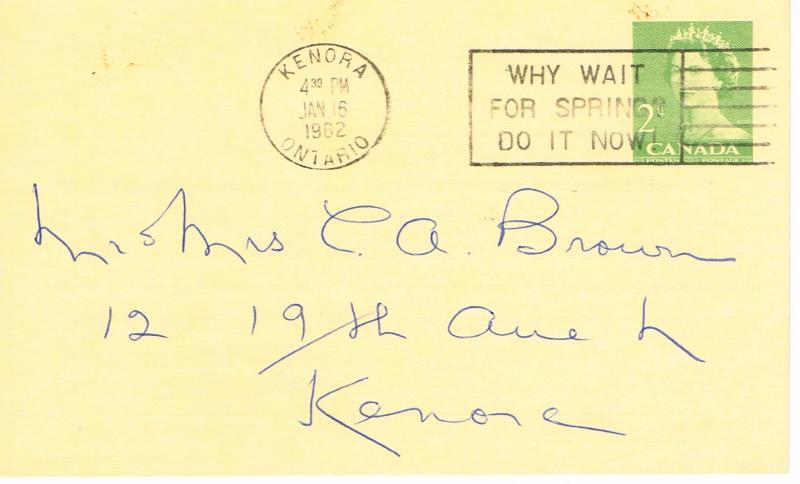 KENORA
4 30 PM
JAN 16
1962
ONTARIO
WHY WAIT
FOR SPRING?
DO IT NOW!
2¢
CANADA
POSTES POSTAGE
Mr & Mrs C. A. Brown
12 19th Ave N
Kenora